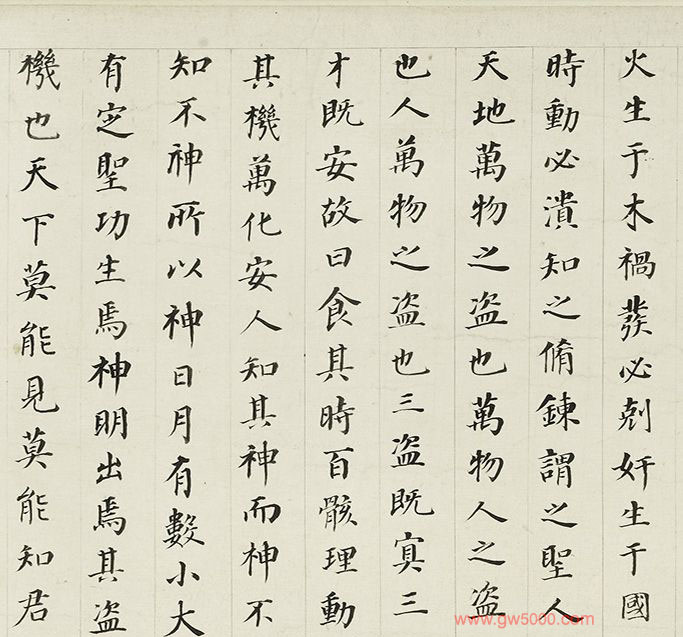 火生于木禍發必剋奸生于國
時動必潰知之脩鍊謂之聖人
天地萬物之盗也萬物人之盗
也人萬物之盗也三盗既冥三
才既安故曰食其時百骸理動
其機萬化安人知其神而神不
知不神所以神日月有數小大
有㝎聖功生焉神明出焉其盗
機也天下莫能見莫能知君
www.gw5000.com